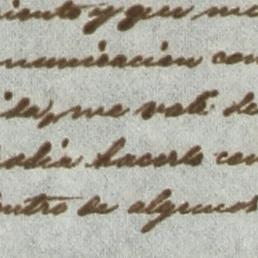 iento y que me
municacion con
ida, me vali de
podia hacerlo con
entro de algunos